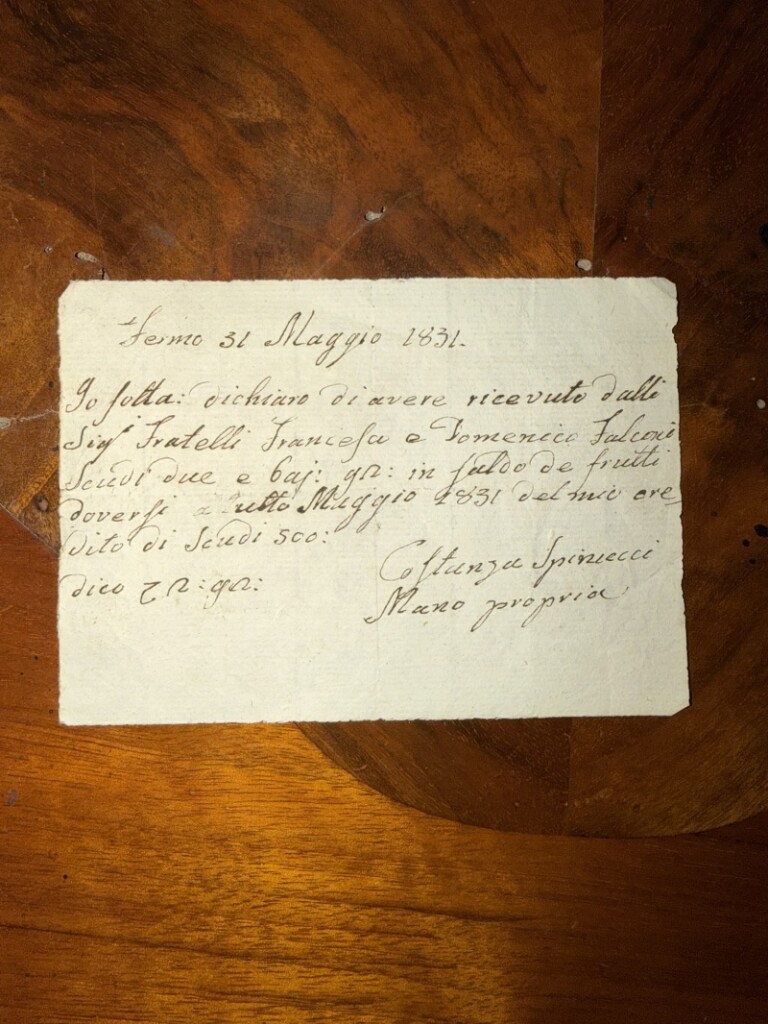 Fermo 31 Maggio 1831.
Io sotta: dichiaro di avere ricevuto dalli
Sigri Fratelli Francesco e Domenico Falconi
Scudi due e baj: 92: in saldo de frutti
doversi a tutto Maggio 1831 del mio cre
dito di Scudi 500:
dico 2: 92:
Costanza Spinucci
Mano propria